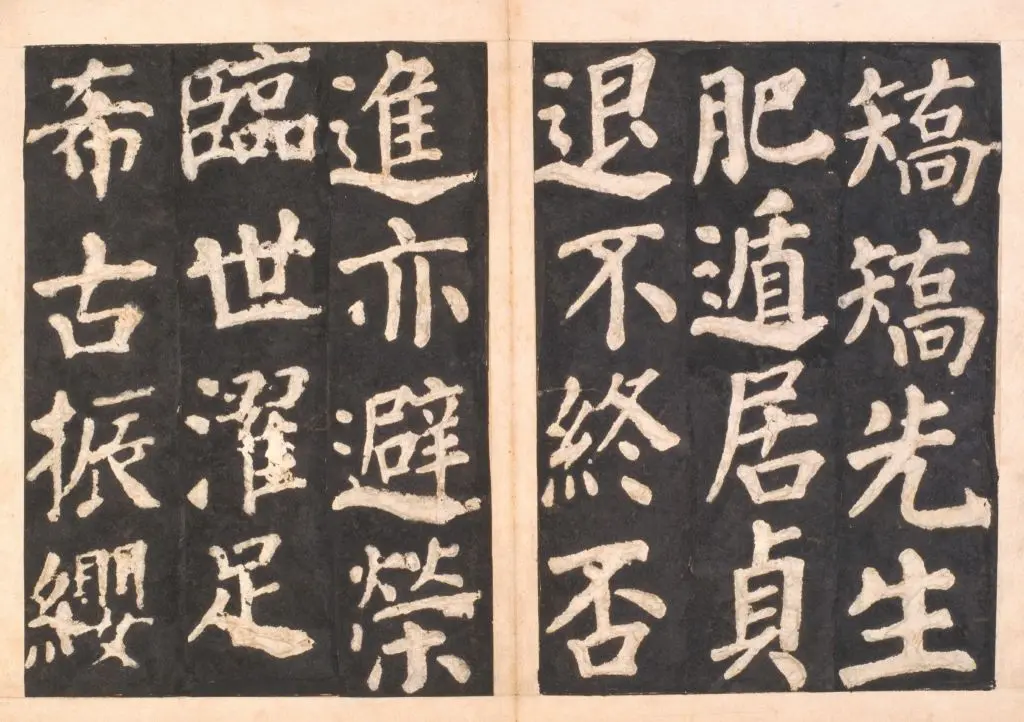 矯矯先生
肥遁居貞
退不終否
進亦避榮
臨世濯足
希古振纓